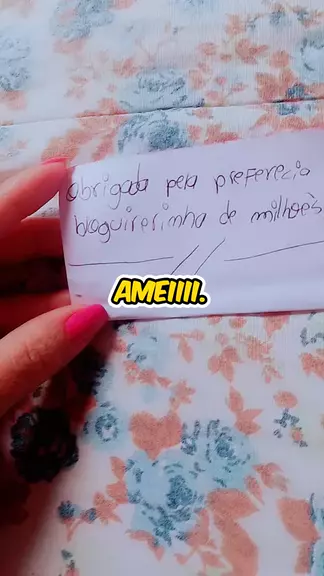 obrigada pela preferecia
bloguirerinha de milhoẽs
AMEIIII.